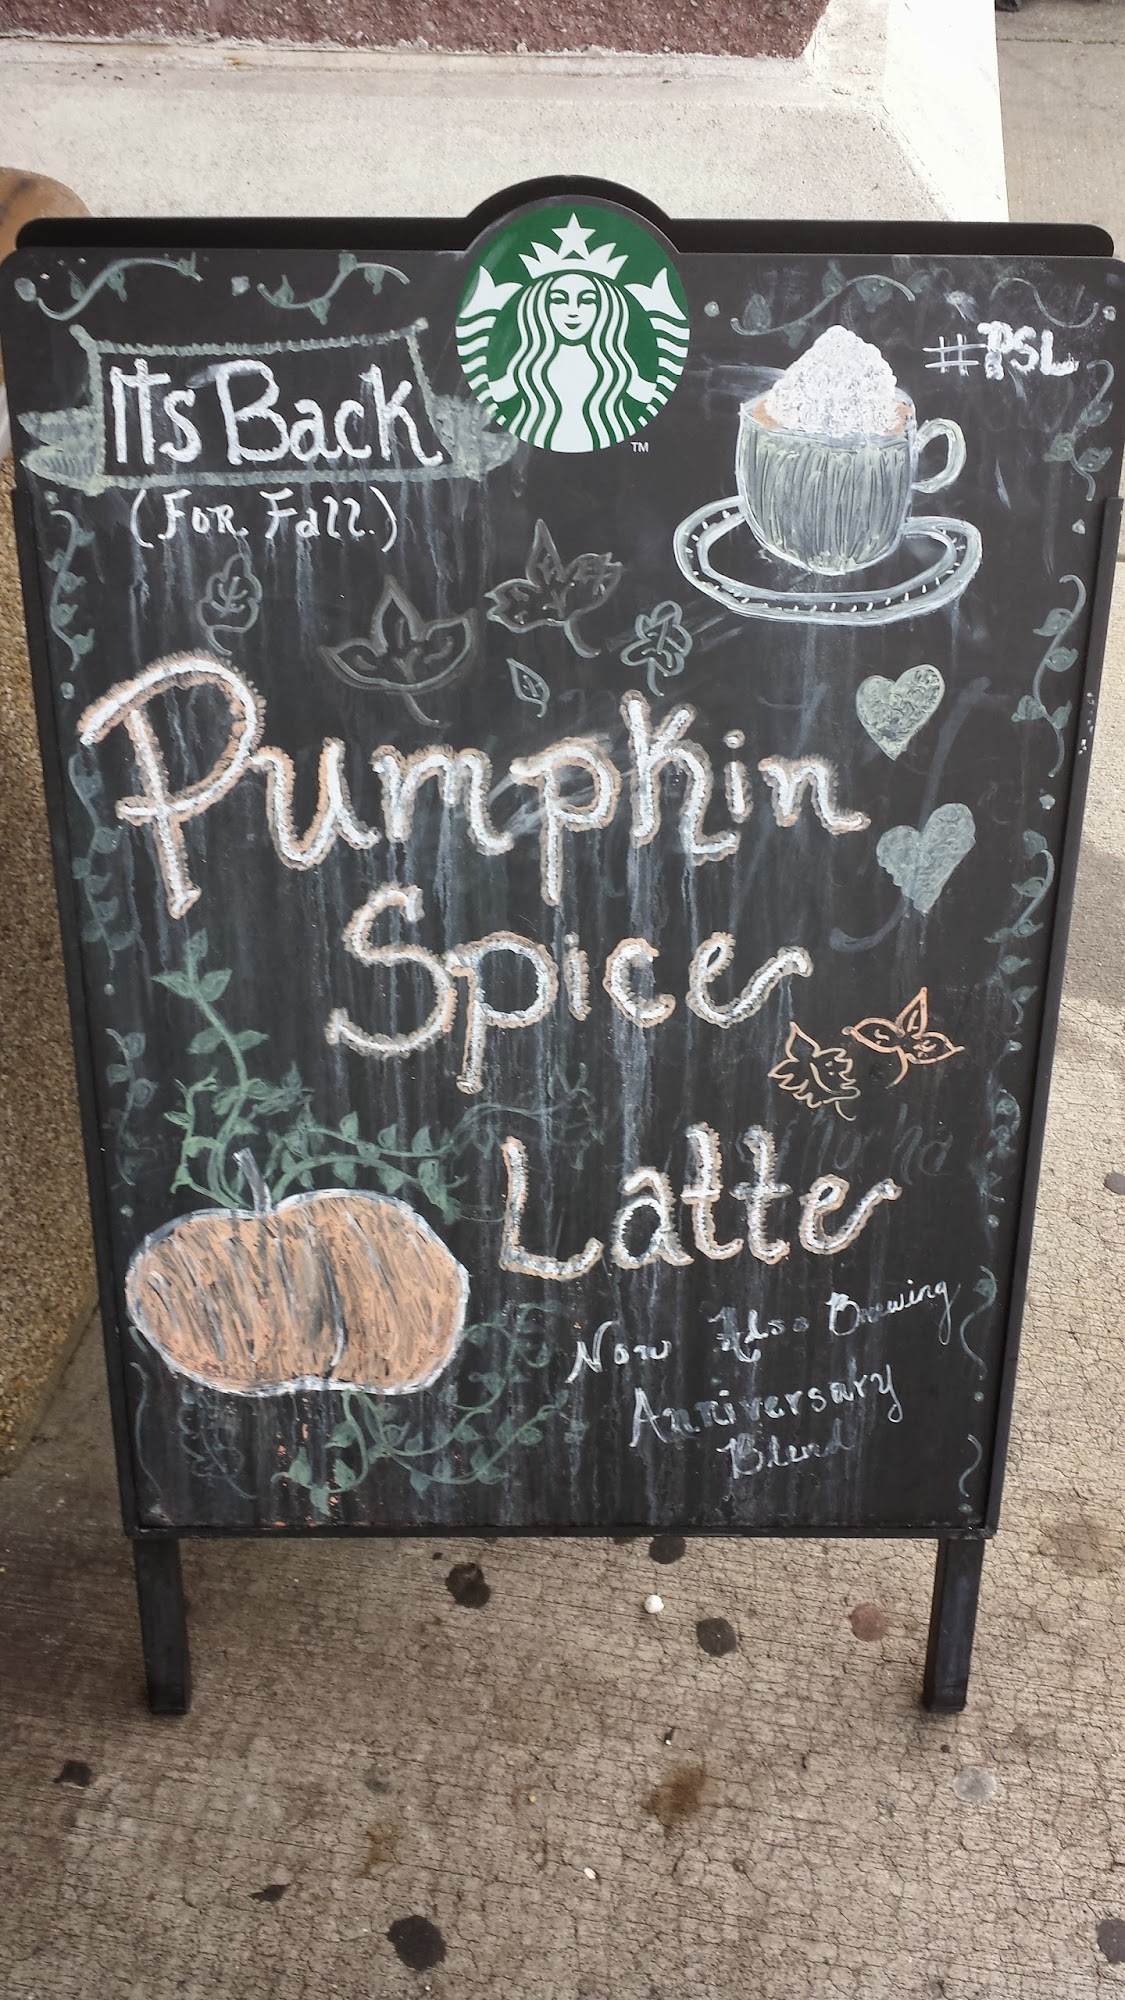 ITs Back
(FOR Fall.)
TM
#PSL
Pumpkin
Spice
Latte
Now Also Brewing
Anniversary
Blend